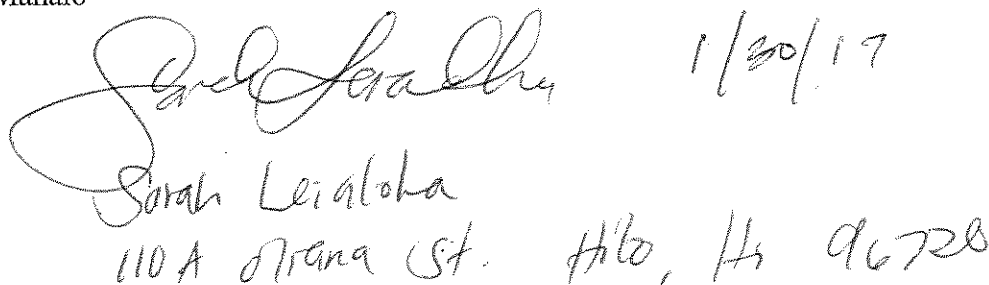 Mahalo
Sarah Leialoha 1/30/17
Sarah Leialoha
110 A St. Hilo, Hi 96720